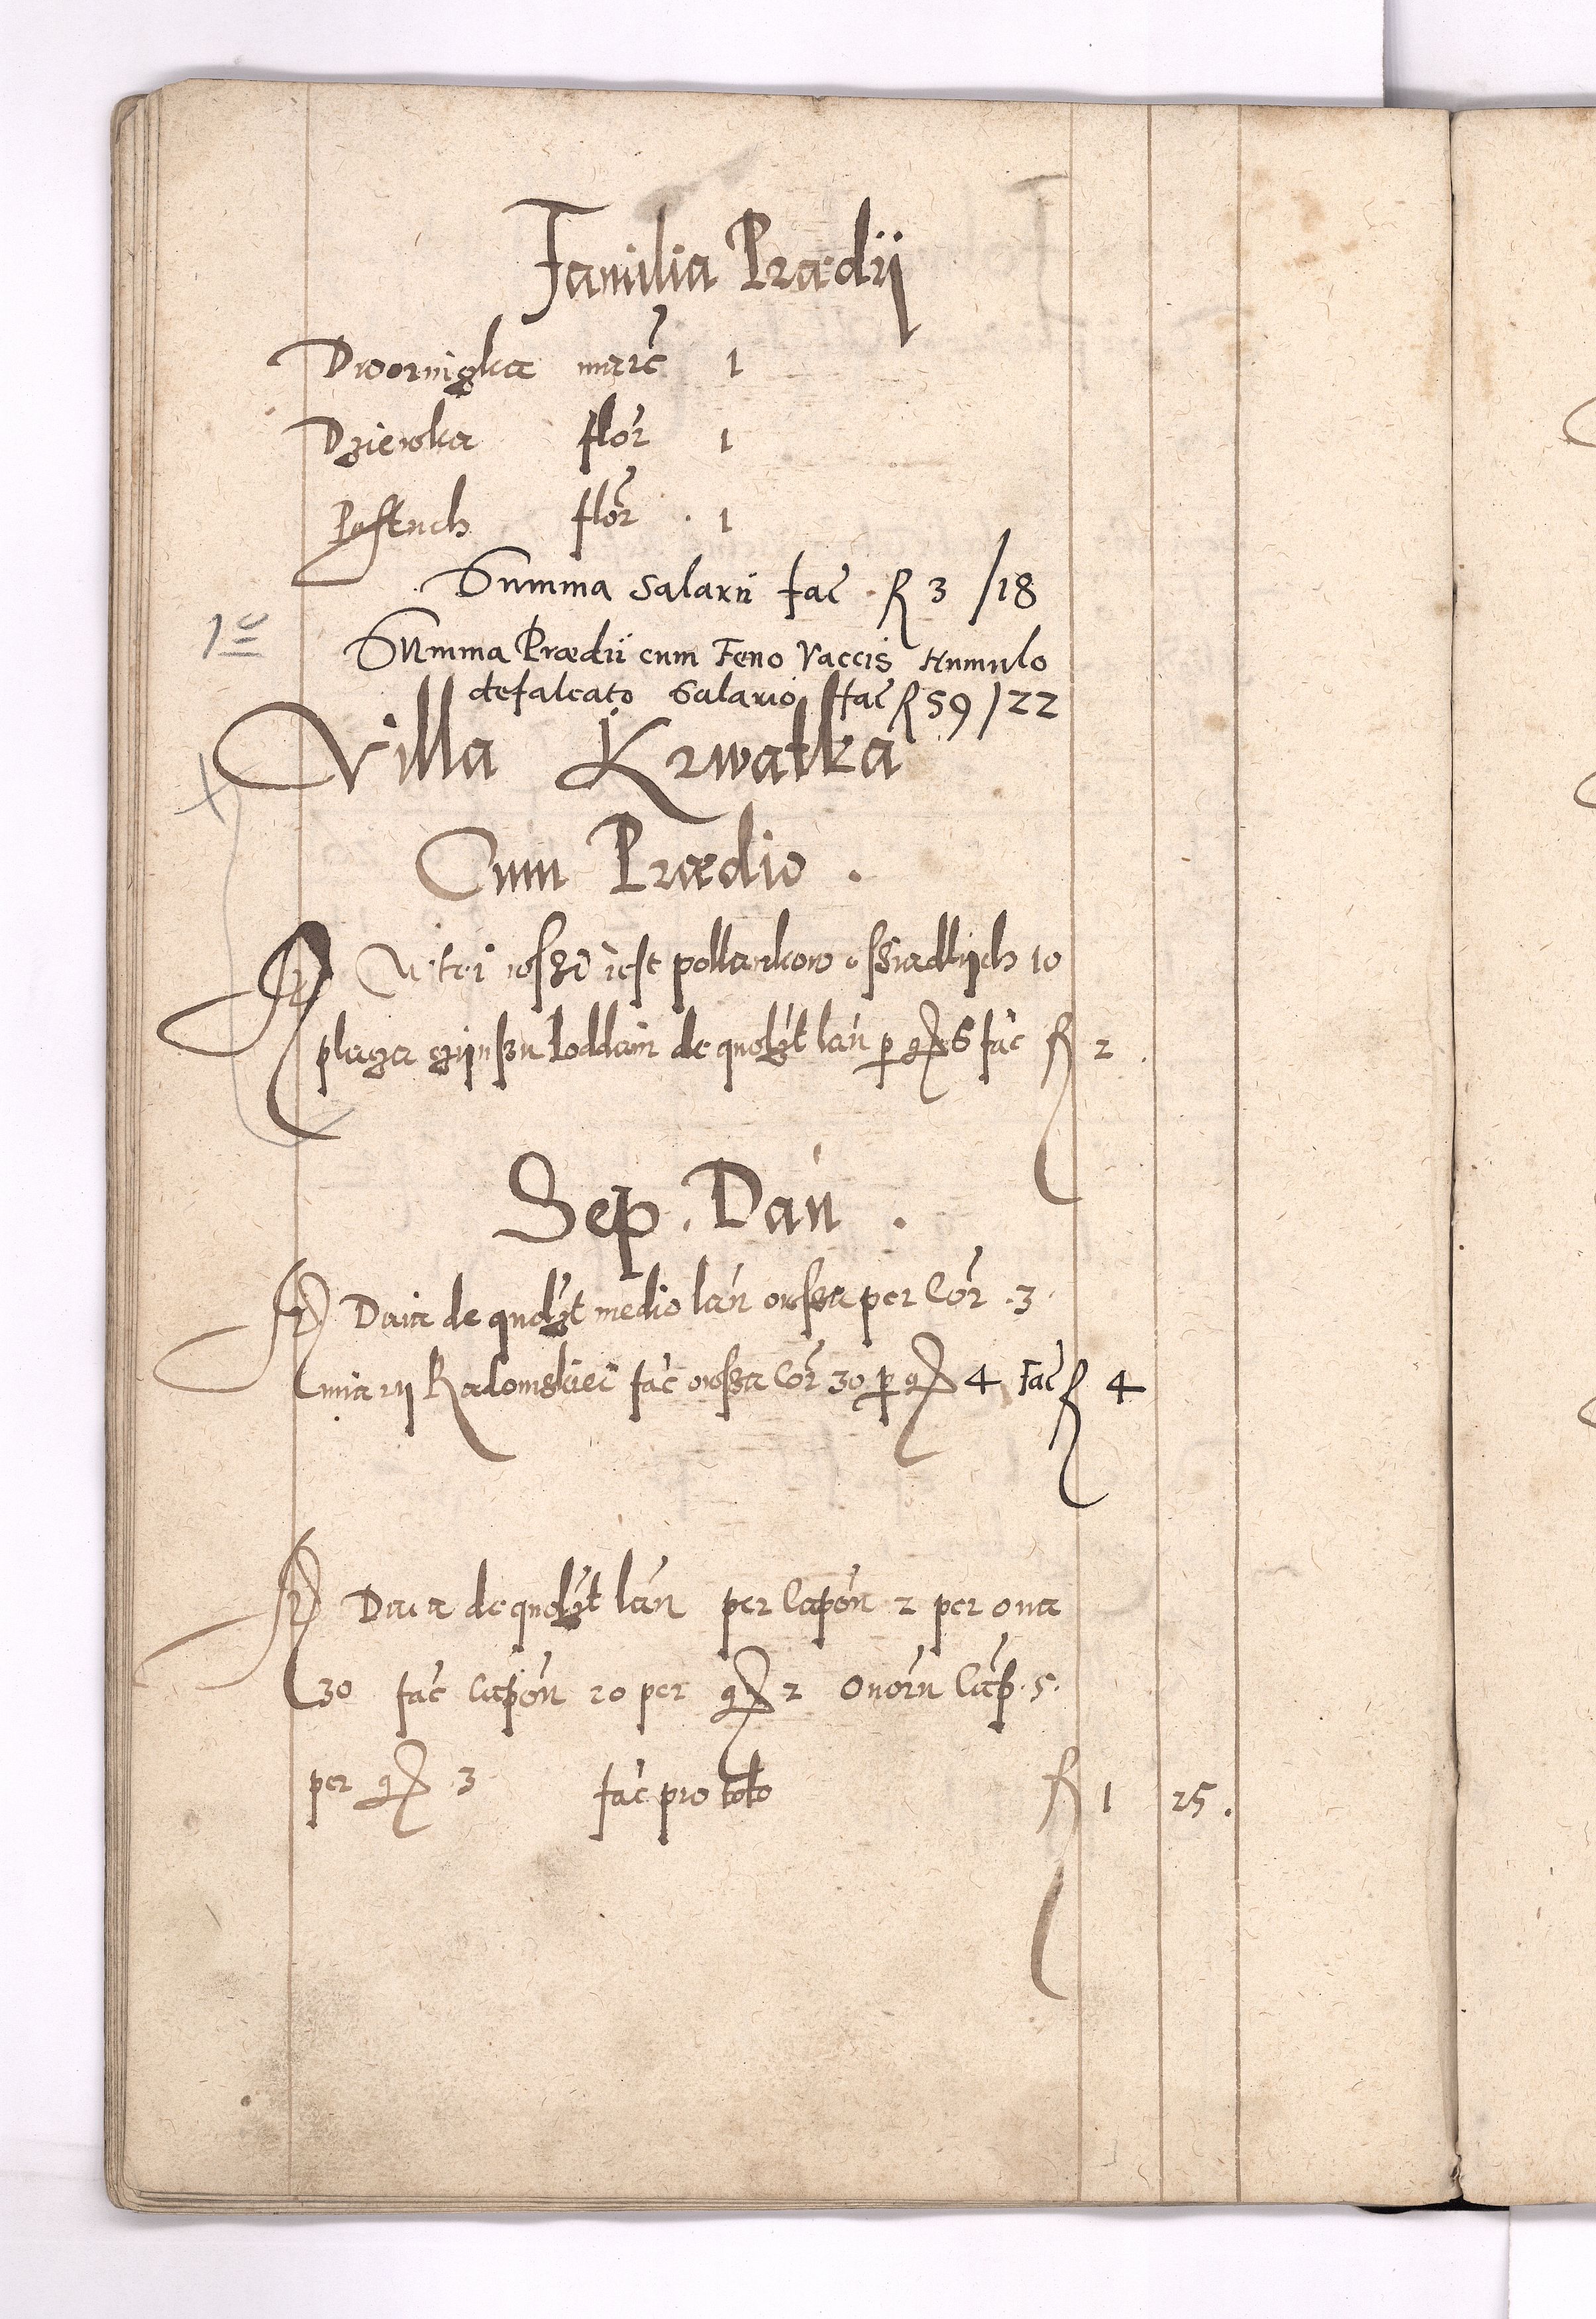 Familia Prædij
Dwornigka marc̃ 1
Dziewka flor̃ 1
Pastuch flor̃ 1
Summa Salarii fac̃ R 3 /18
Summa Prædii cum Feno Vaccis Humulo
defalcato Salario fac̃ R 59 /22
Villa Krwatka
Cum Prædio .
W tei wssi iest pollankow ossiadlych 10
płaza czijnszu Loddain de quolt̃ lan̄ p gr 6 fac̃ R 2
Sep. Dan̄ .
Daia de quolt̃ medio lan̄ owssa per Cor̃ 3
miary Radomskiei fac̃ owssa Cor̃ 30 p gr 4 fac̃ R 4
Daia de quolt̃ lan̄ per Capon̄ 2 per oua
30 fac̃ Capon̄ 20 per gr 2 Ouorū Cap̄. 5.
per gr 3 fac̃ pro toto R 1 25.